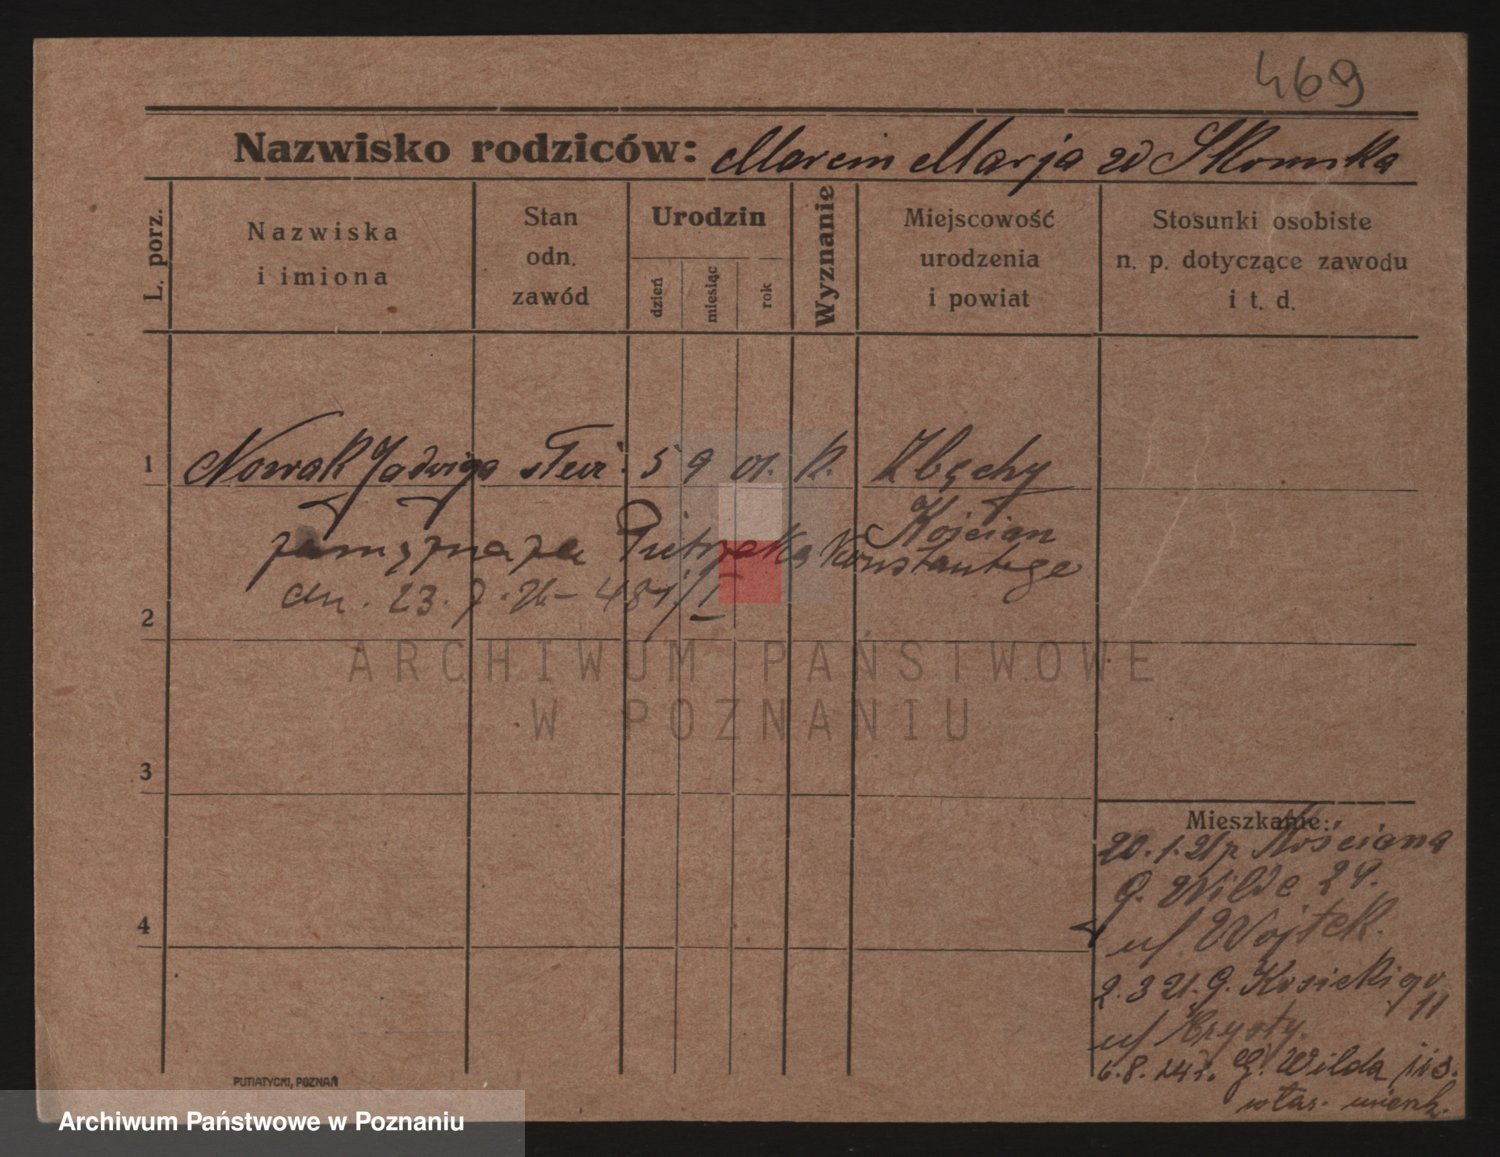 469
Nazwisko rodziców: Marcin Marja zd Skowrońska
L. porz.
Nazwiska i imiona
Stan odn. zawód
Urodzin
dzień
miesiąc
rok
Wyznanie
Miejscowość urodzenia i powiat
Stosunki osobiste n. p. dotyczące zawodu i t. d.
1 Nowak Jadwiga 5 9 01. k. Zbęchy
Kościan
zamężna za Pietrzaka Konstantego
dn. 23. 481/I
2
ARCHIWUM PAŃSTWOWE
W POZNANIU
3
Mieszkanie:
20. 1. 21 z Kościana
G. Wilde 29.
4
u/ Wojtek.
2. 3 21. G. Kosickiego 11
u/
6. 8. 24 r. G. Wilda 113.
włas. mieszk.
PUTIATYCKI, POZNAŃ
Archiwum Państwowe w Poznaniu